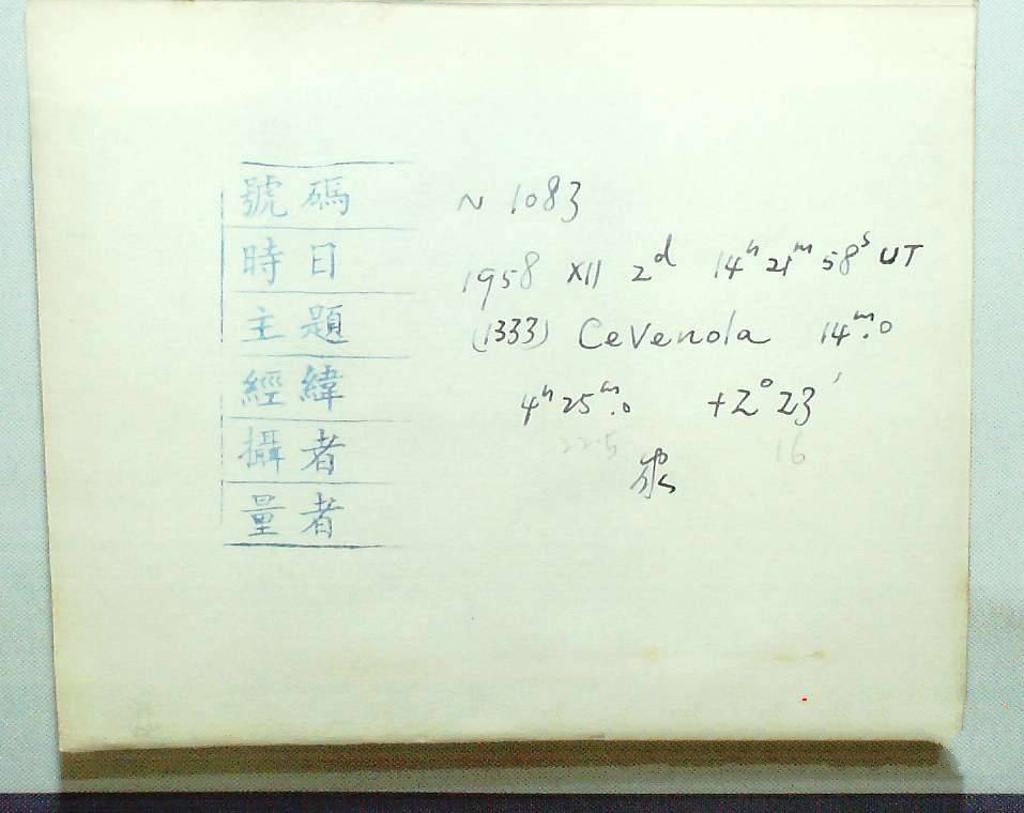 號碼 N 1083
時日 1958 XII 2ᵈ 14ʰ 21ᵐ 58ˢ UT
主題 (1333) Cevenola 14ᵐ.0
經緯 4ʰ 25ᵐ.0 +2° 23′
22.5 16
攝者
量者